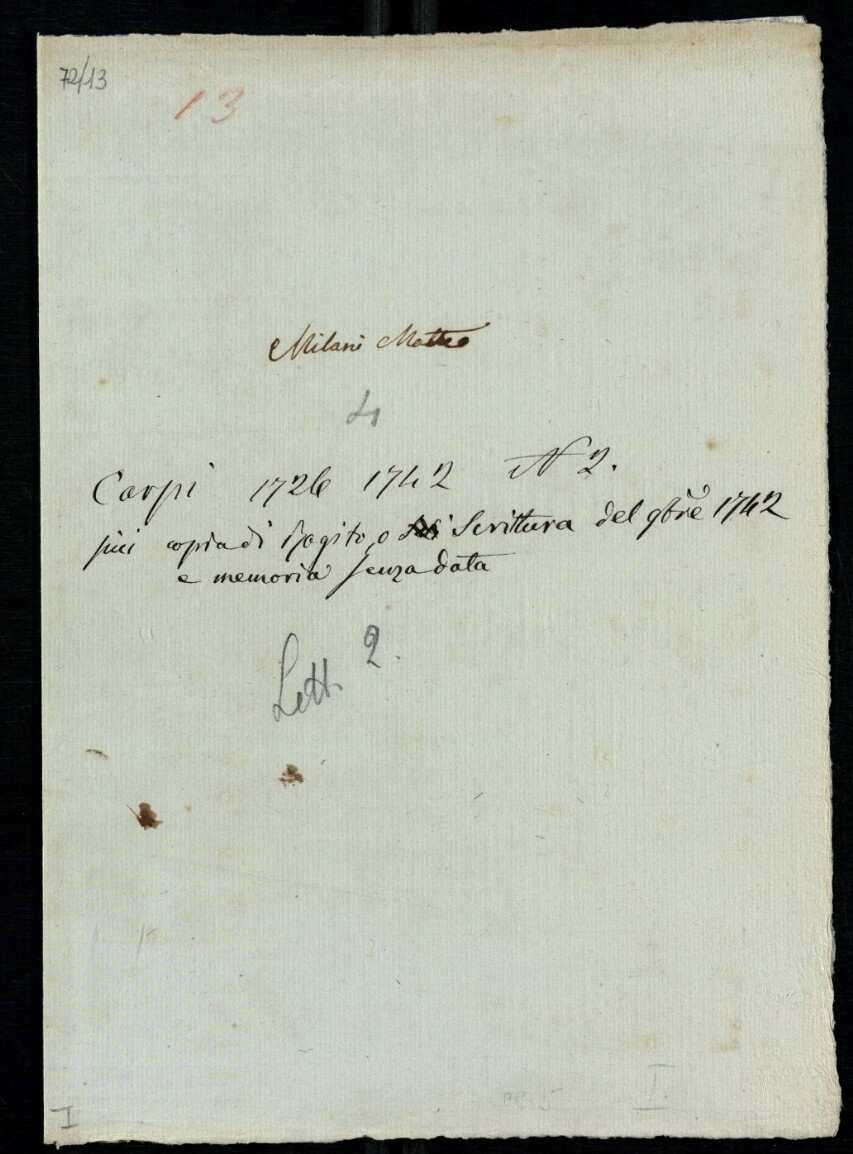 72/13
13
Milani Matteo
4
Carpi 1726 1742 N 2.
più copia di Rogito, o Scrittura del 9bre 1742
e memoria senza data
Lett. 2.
I
I